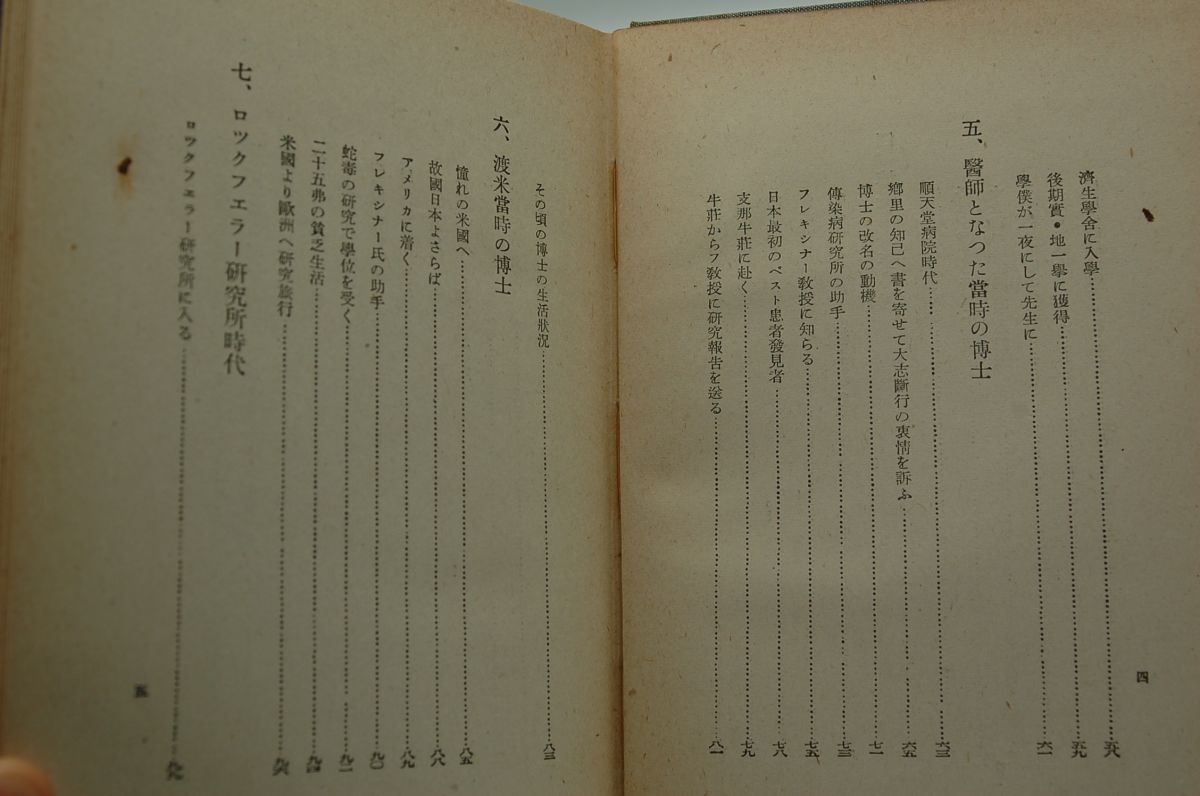 濟生學舍に入學……五八
後期實・地一擧に獲得……五九
學僕が、一夜にして先生に……六一
五、醫師となつた當時の博士
順天堂病院時代……六三
鄕里の知己へ書を寄せて大志斷行の衷情を訴ふ……六五
博士の改名の動機……七一
傳染病硏究所の助手……七三
フレキシナー敎授に知らる……七五
日本最初のペスト患者發見者……七八
支那牛莊に赴く……七九
牛莊からフ敎授に硏究報吿を送る……八一
四
その頃の博士の生活狀況……八三
六、渡米當時の博士
憧れの米國へ……八五
故國日本よさらば……八八
アメリカに着く……八九
フレキシナー氏の助手……九〇
蛇毒の硏究で學位を受く……九二
二十五弗の貧乏生活……九四
米國より歐洲へ硏究旅行……九六
七、ロツクフエラー硏究所時代
ロツクフエラー硏究所に入る……九九
五